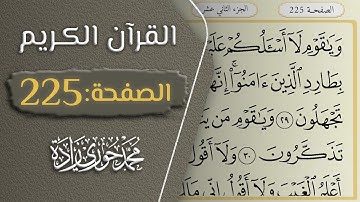 القرآن الكريم
الصفحة: 225
محمد حوري زادة
الصفحة 225
الجزء الثاني عشر
وَيَٰقَوْمِ لَآ أَسْـَٔلُكُمْ عَلَيْهِ
بِطَارِدِ ٱلَّذِينَ ءَامَنُوٓا۟ ۚ إِنَّهُم
تَجْهَلُونَ ٢٩ وَيَٰقَوْمِ مَن يَن
تَذَكَّرُونَ ٣٠ وَلَآ أَقُولُ
أَعْلَمُ ٱلْغَيْبَ وَلَآ أَقُولُ إِنِّى مَلَ